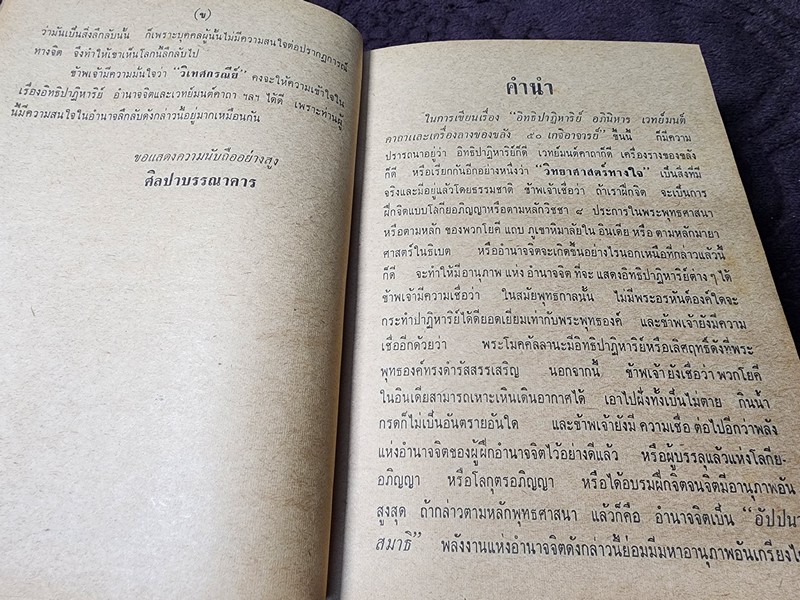 (ข)
ว่ามันเป็นสิ่งลึกลับนั้น ก็เพราะบุคคลผู้นั้นไม่มีความสนใจต่อปรากฏการณ์
ทางจิต จึงทำให้เขาเห็นโลกนี้ลึกลับไป
ข้าพเจ้ามีความมั่นใจว่า “วิเทศกรณีย์” คงจะให้ความเข้าใจใน
เรื่องอิทธิปาฏิหาริย์ อำนาจจิตและเวทย์มนต์คาถา ฯลฯ ได้ดี เพราะท่านผู้
นี้มีความสนใจในอำนาจลึกลับดังกล่าวนี้อยู่มากเหมือนกัน
ขอแสดงความนับถืออย่างสูง
ศิลปาบรรณาคาร
คำนำ
ในการเขียนเรื่อง “อิทธิปาฏิหาริย์ อภินิหาร เวทย์มนต์
คาถาและเครื่องลางของขลัง ๕๐ เกจิอาจารย์” ขึ้นนี้ ก็มีความ
ปรารถนาอยู่ว่า อิทธิปาฏิหาริย์ก็ดี เวทย์มนต์คาถาก็ดี เครื่องรางของขลัง
ก็ดี หรือเรียกกันอีกอย่างหนึ่งว่า “วิทยาศาสตร์ทางใจ” เป็นสิ่งที่มี
จริงและมีอยู่แล้วโดยธรรมชาติ ข้าพเจ้าเชื่อว่า ถ้าเราฝึกจิต จะเป็นการ
ฝึกจิตแบบโลกียอภิญญาหรือตามหลักวิชชา ๘ ประการในพระพุทธศาสนา
หรือตามหลัก ของพวกโยคี แถบ ภูเขาหิมาลัยใน อินเดีย หรือ ตามหลักมายา
ศาสตร์ในธิเบต หรืออำนาจจิตจะเกิดขึ้นอย่างไรนอกเหนือที่กล่าวแล้วนี้
ก็ดี จะทำให้มีอานุภาพ แห่ง อำนาจจิต ที่จะ แสดงอิทธิปาฏิหาริย์ต่าง ๆ ได้
ข้าพเจ้ามีความเชื่อว่า ในสมัยพุทธกาลนั้น ไม่มีพระอรหันต์องค์ใดจะ
กระทำปาฏิหาริย์ได้ดียอดเยี่ยมเท่ากับพระพุทธองค์ และข้าพเจ้ายังมีความ
เชื่ออีกด้วยว่า พระโมคคัลลานะมีอิทธิปาฏิหาริย์หรือเลิศฤทธิ์ดังที่พระ
พุทธองค์ทรงดำรัสสรรเสริญ นอกจากนี้ ข้าพเจ้า ยังเชื่อว่า พวกโยคี
ในอินเดียสามารถเหาะเหินเดินอากาศได้ เอาไปฝังทั้งเป็นไม่ตาย กินน้ำ
กรดก็ไม่เป็นอันตรายอันใด และข้าพเจ้ายังมี ความเชื่อ ต่อไปอีกว่าพลัง
แห่งอำนาจจิตของผู้ฝึกอำนาจจิตไว้อย่างดีแล้ว หรือผู้บรรลุแล้วแห่งโลกีย-
อภิญญา หรือโลกุตรอภิญญา หรือได้อบรมฝึกจิตจนจิตมีอานุภาพอัน
สูงสุด ถ้ากล่าวตามหลักพุทธศาสนา แล้วก็คือ อำนาจจิตเป็น “อัปปนา
สมาธิ” พลังงานแห่งอำนาจจิตดังกล่าวนี้ย่อมมีมหาอานุภาพอันเกรียงไ